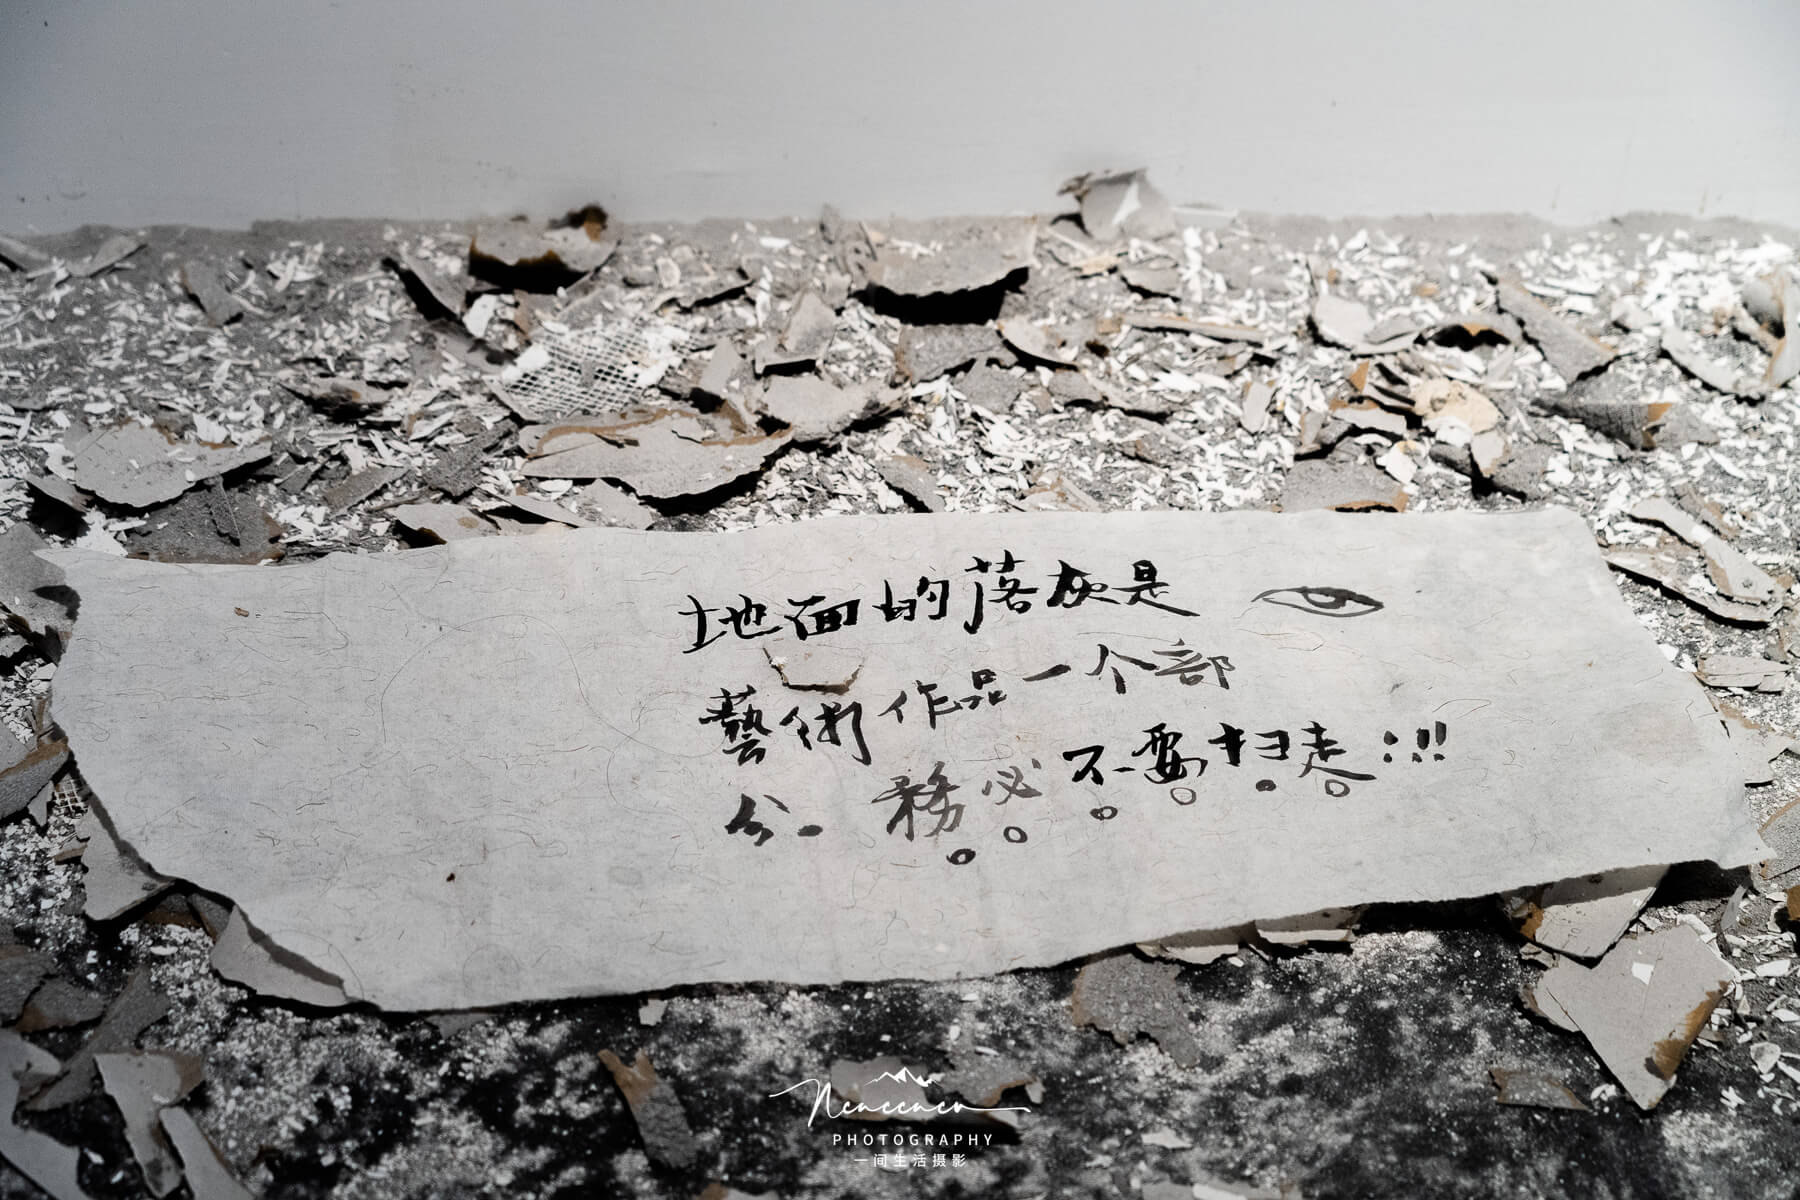 地面的落灰是
藝術作品一个部
分。務必不要扫走:!!!
PHOTOGRAPHY
一间生活摄影